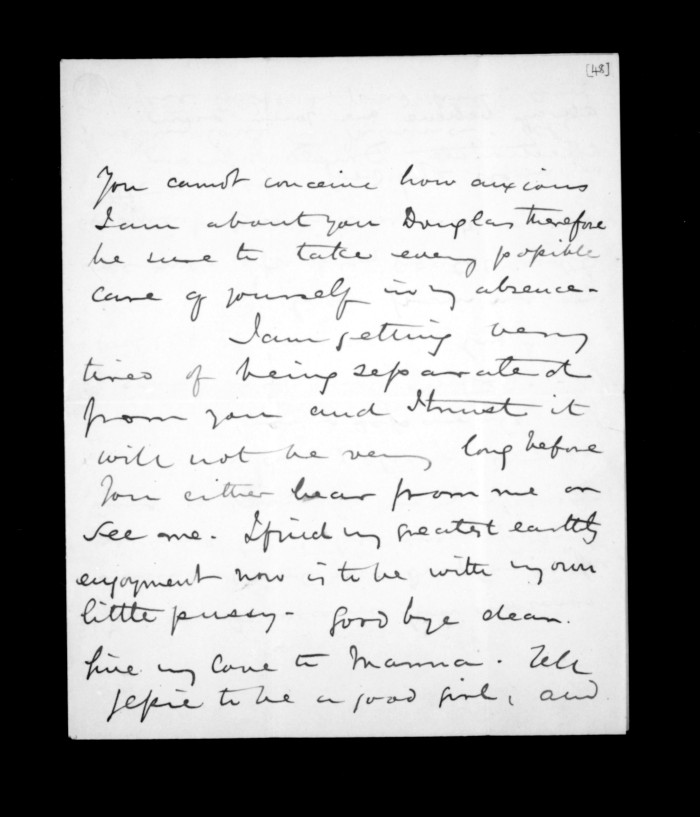 [48]
You cannot conceive how anxious
I am about you Douglas therefore
be sure to take every possible
care of yourself in my absence -
I am getting very
tired of being separated
from you and I trust it
will not be very long before
you either hear from me or
see me. I find my greatest earthly
enjoyment now is to be with my own
little pussy - Good bye dear.
Give my love to Mamma. Tell
Jessie to be a good girl, and